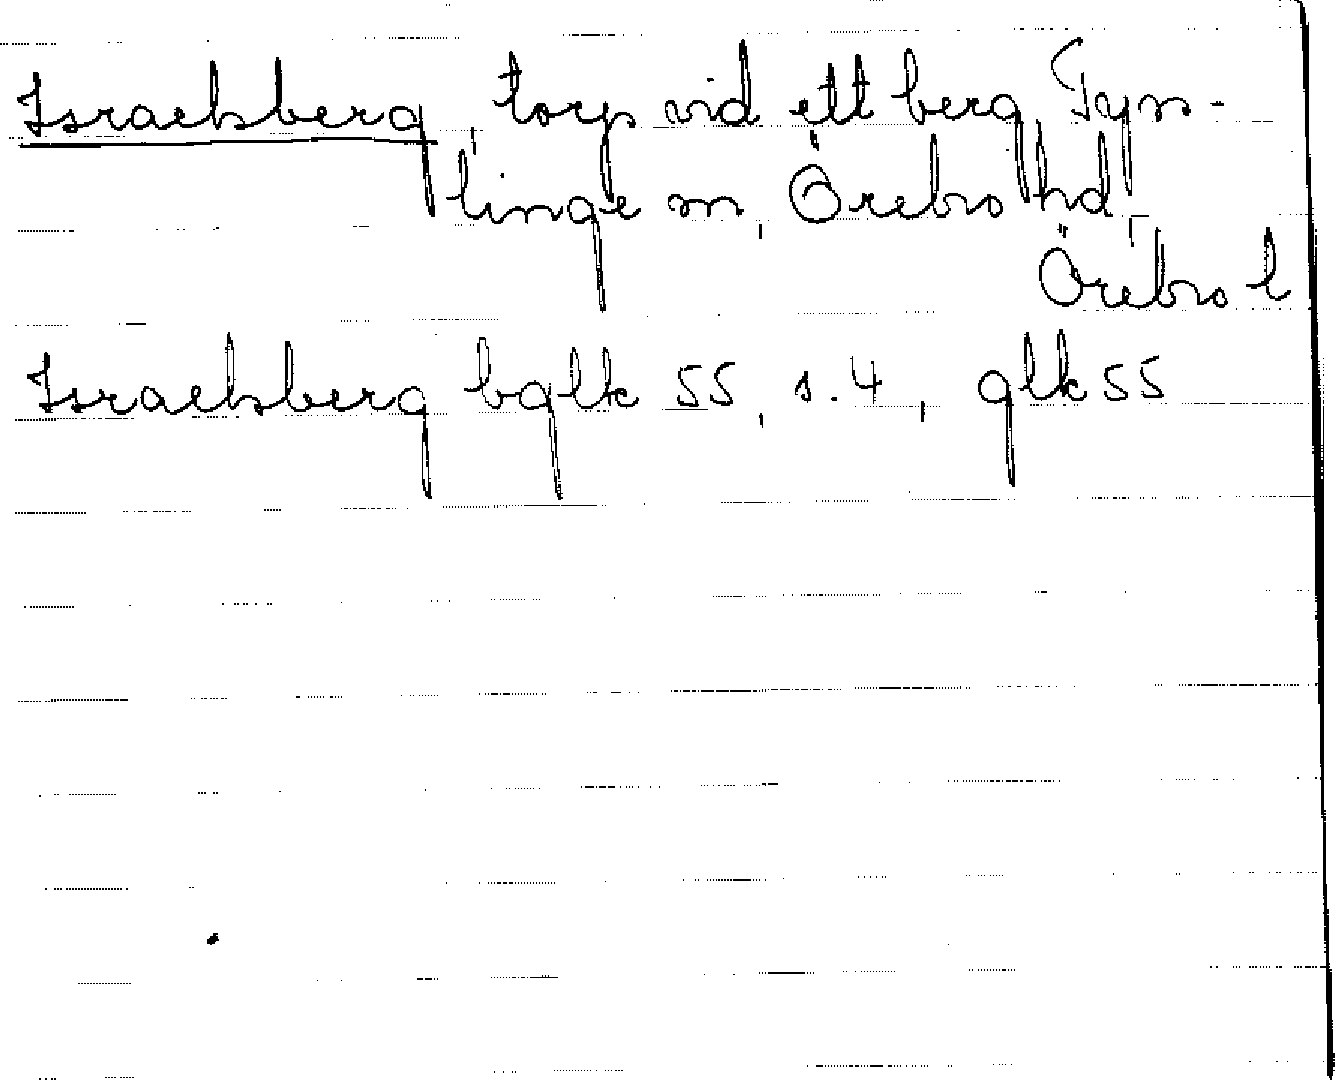 Israelsberg, torp vid ett berg Tyss-
linge sn, Örebro hd,
Örebro l
Israelsberg bglk 55, s. 4, glk 55